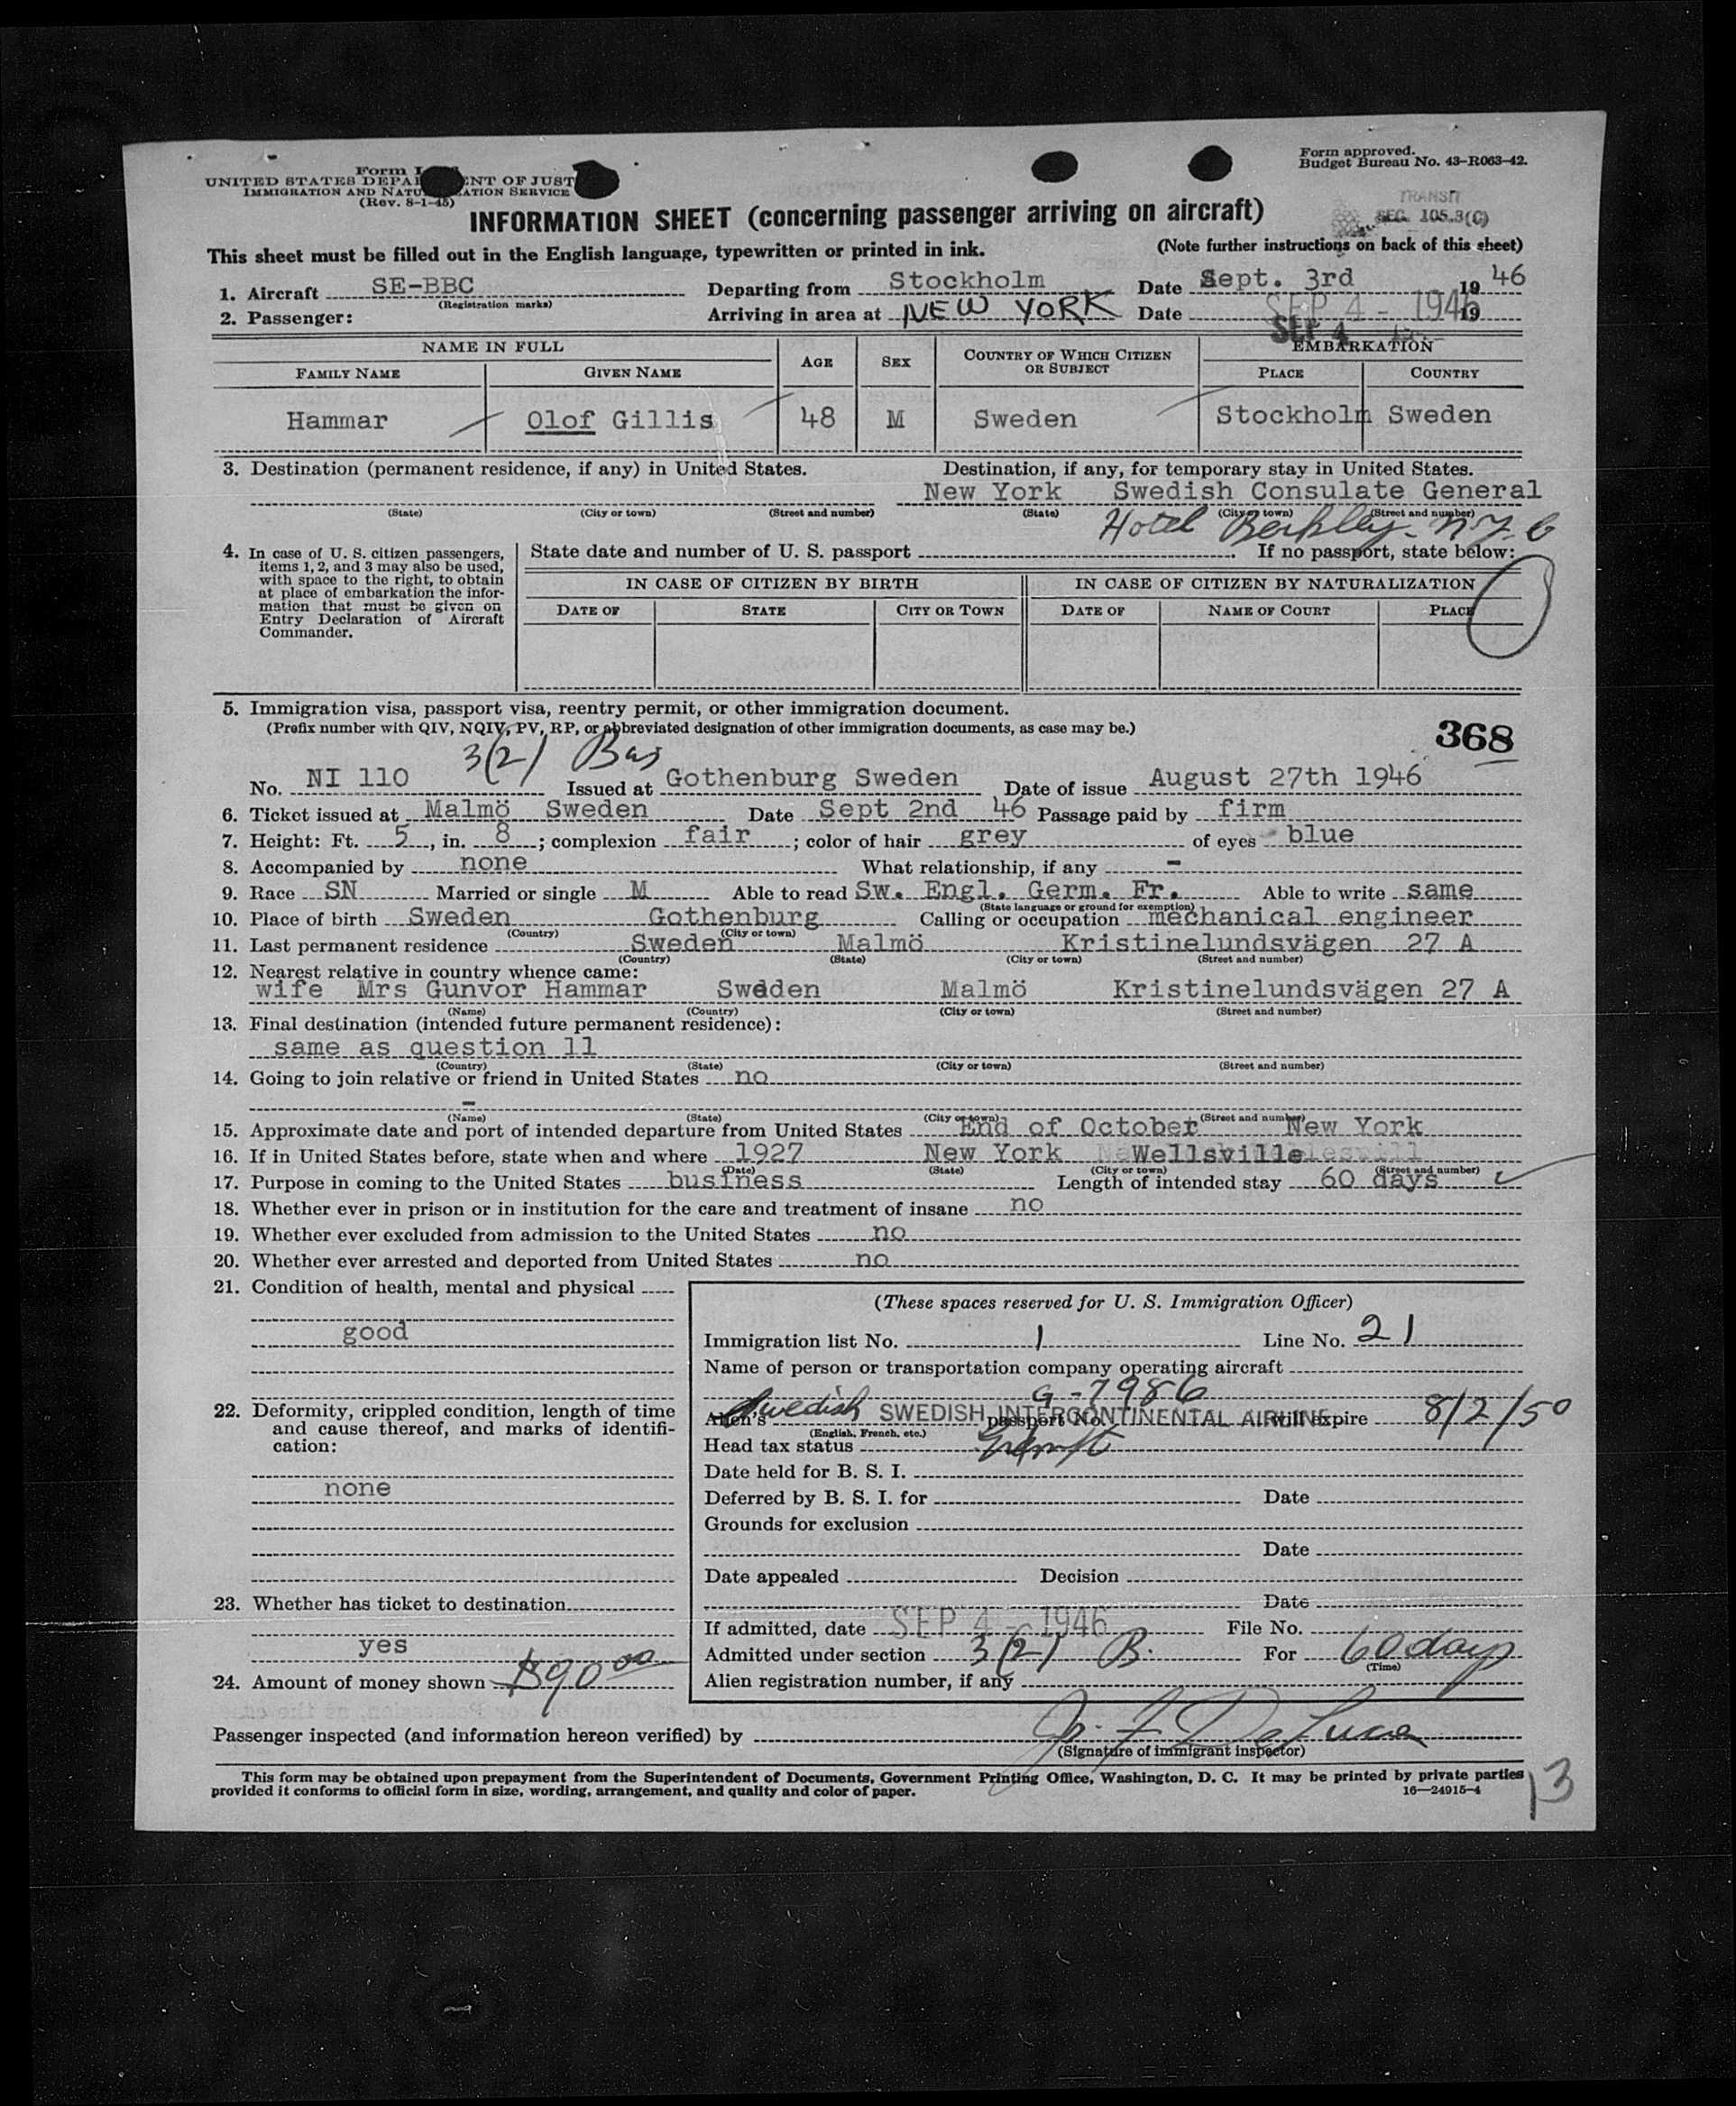 Form I
UNITED STATES DEPA ENT OF JUST
IMMIGRATION AND NATU ATION SERVICE
(Rev. 8-1-45)
Form approved.
Budget Bureau No. 43-R063-42.
TRANSIT
SEC. 105.3(C)
INFORMATION SHEET (concerning passenger arriving on aircraft)
This sheet must be filled out in the English language, typewritten or printed in ink.
(Note further instructions on back of this sheet)
1. Aircraft SE-BBC Departing from Stockholm Date Sept. 3rd 19 46
(Registration marks)
2. Passenger: Arriving in area at NEW YORK Date SEP 4 - 1946 19
SEP 4
NAME IN FULL AGE SEX COUNTRY OF WHICH CITIZEN OR SUBJECT EMBARKATION
FAMILY NAME GIVEN NAME PLACE COUNTRY
Hammar Olof Gillis 48 M Sweden Stockholm Sweden
3. Destination (permanent residence, if any) in United States. Destination, if any, for temporary stay in United States.
New York Swedish Consulate General
(State) (City or town) (Street and number) (State) (City or town) (Street and number)
Hotel Berkley - N.Y.C
4. In case of U. S. citizen passengers, items 1, 2, and 3 may also be used, with space to the right, to obtain at place of embarkation the information that must be given on Entry Declaration of Aircraft Commander.
State date and number of U. S. passport . If no passport, state below:
IN CASE OF CITIZEN BY BIRTH IN CASE OF CITIZEN BY NATURALIZATION
DATE OF STATE CITY OR TOWN DATE OF NAME OF COURT PLACE
5. Immigration visa, passport visa, reentry permit, or other immigration document.
(Prefix number with QIV, NQIV, PV, RP, or abbreviated designation of other immigration documents, as case may be.)
368
3(2) Bus
No. NI 110 Issued at Gothenburg Sweden Date of issue August 27th 1946
6. Ticket issued at Malmö Sweden Date Sept 2nd 46 Passage paid by firm
7. Height: Ft. 5, in. 8; complexion fair; color of hair grey of eyes blue
8. Accompanied by none What relationship, if any -
9. Race SN Married or single M Able to read Sw. Engl. Germ. Fr. Able to write same
(State language or ground for exemption)
10. Place of birth Sweden Gothenburg Calling or occupation mechanical engineer
(Country) (City or town)
11. Last permanent residence Sweden Malmö Kristinelundsvägen 27 A
(Country) (State) (City or town) (Street and number)
12. Nearest relative in country whence came:
wife Mrs Gunvor Hammar Sweden Malmö Kristinelundsvägen 27 A
(Name) (Country) (City or town) (Street and number)
13. Final destination (intended future permanent residence):
same as question 11
(Country) (State) (City or town) (Street and number)
14. Going to join relative or friend in United States no
-
(Name) (State) (City or town) (Street and number)
15. Approximate date and port of intended departure from United States End of October New York
16. If in United States before, state when and where 1927 New York Wellsville
(Date) (State) (City or town) (Street and number)
17. Purpose in coming to the United States business Length of intended stay 60 days
18. Whether ever in prison or in institution for the care and treatment of insane no
19. Whether ever excluded from admission to the United States no
20. Whether ever arrested and deported from United States no
21. Condition of health, mental and physical
good
22. Deformity, crippled condition, length of time and cause thereof, and marks of identification:
none
23. Whether has ticket to destination
yes
24. Amount of money shown $90 00
(These spaces reserved for U. S. Immigration Officer)
Immigration list No. 1 Line No. 21
Name of person or transportation company operating aircraft
SWEDISH INTERCONTINENTAL AIRLINE
Alien's Swedish passport No. G-7986 will expire 8/2/50
(English, French, etc.)
Head tax status Exempt
Date held for B. S. I.
Deferred by B. S. I. for Date
Grounds for exclusion
Date
Date appealed Decision
Date
If admitted, date SEP 4 - 1946 File No.
Admitted under section 3(2) B. For 60 days
(Time)
Alien registration number, if any
Passenger inspected (and information hereon verified) by J. F. DeLuca
(Signature of immigrant inspector)
This form may be obtained upon prepayment from the Superintendent of Documents, Government Printing Office, Washington, D. C. It may be printed by private parties
provided it conforms to official form in size, wording, arrangement, and quality and color of paper. 16—24915-4
13